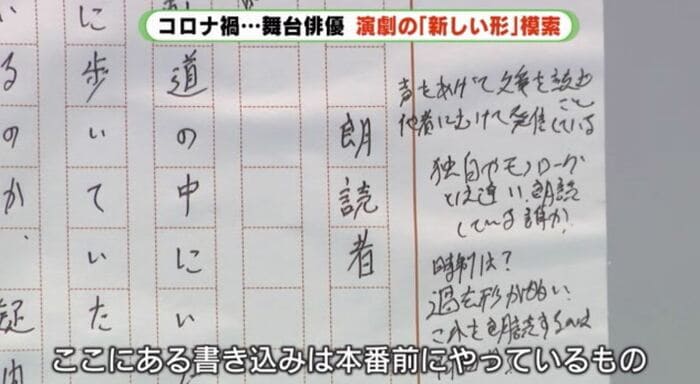 コロナ禍…舞台俳優 演劇の「新しい形」模索
声をあげて文章を読む
こと
他者にむけて発信している
独白やモノローグ
とは違い、朗読
している誰か。
時制は?
過去形が多い、
これを朗読するのは
朗読者
道の中にい
に歩いていた
るのか、疑
ここにある書き込みは本番前にやっているもの